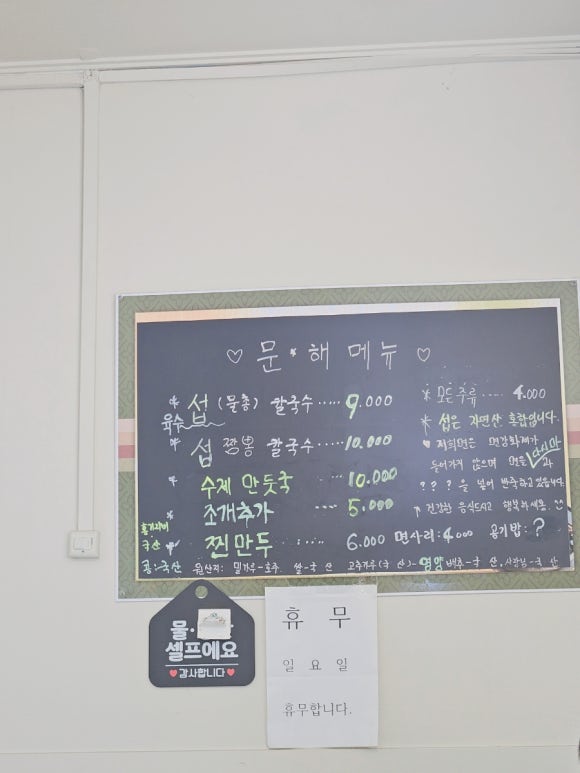 ♡ 문 * 해 메뉴 ♡
* 섭 (물총) 칼국수 ..... 9.000
육수
* 섭 짬뽕 칼국수 ..... 10.000
* 수제 만둣국 ..... 10.000
* 조개추가 ... 5.000
국산 * 찐만두 ..... 6.000 면사리: 4.000 공기밥: ?
콩:국산 원산지: 밀가루-호주 쌀-국산 고추가루(국산)-영양 배추-국산. 사장님-국산
* 모든 주류 .... 4.000
* 섭은 자연산 홍합입니다.
♡ 저희면은 면강화제가
들어가지 않으며 면을 다시마 과
? ? ? 을 넣어 반죽하고 있습니다.
건강한 음식드시고 행복하세용.
물.
셀프에요
♥감사합니다♥
휴 무
일 요 일
휴무합니다.